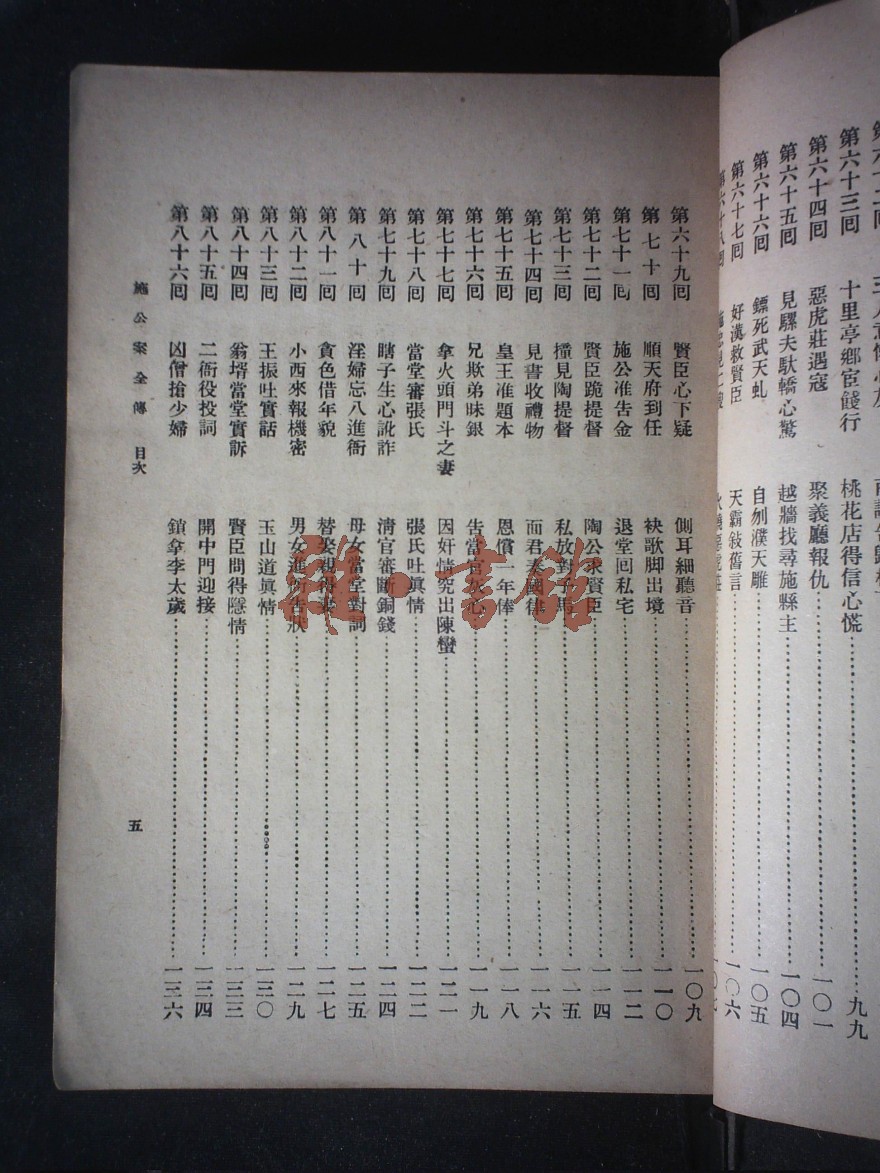 第六十三回 十里亭鄉宦餞行 桃花店得信心慌 九九
第六十四回 惡虎莊遇寇 聚義廳報仇 一〇一
第六十五回 見騾夫馱轎心驚 越牆找尋施縣主 一〇四
第六十六回 鏢死武天虬 自刎濮天雕 一〇五
第六十七回 好漢救賢臣 天霸敍舊言 一〇六
第六十八回
第六十九回 賢臣心下疑 側耳細聽音 一〇九
第七十回 順天府到任 袂歌脚出境 一一〇
第七十一回 施公准告金 退堂回私宅 一一二
第七十二回 賢臣跪提督 陶公求賢臣 一一四
第七十三回 撞見陶提督 私放對子馬 一一五
第七十四回 見書收禮物 面君奏國律 一一六
第七十五回 皇王准題本 恩賞一年俸 一一八
第七十六回 兄欺弟昧銀 告當官灰心 一一九
第七十七回 拿火頭門斗之妻 因奸情究出陳蠻 一二一
第七十八回 當堂審張氏 張氏吐眞情 一二二
第七十九回 瞎子生心訛詐 清官審斷銅錢 一二四
第八十回 淫婦忘八進衙 母女當堂對詞 一二五
第八十一回 貪色借年貌 替娶親得妻 一二七
第八十二回 小西來報機密 男女進衙告狀 一二九
第八十三回 王振吐實話 玉山道眞情 一三〇
第八十四回 翁壻當堂實訴 賢臣問得隱情 一三三
第八十五回 二衙役投詞 開中門迎接 一三四
第八十六回 凶僧搶少婦 鎖拿李太歲 一三六
施公案全傳 目次
五
雅·書館